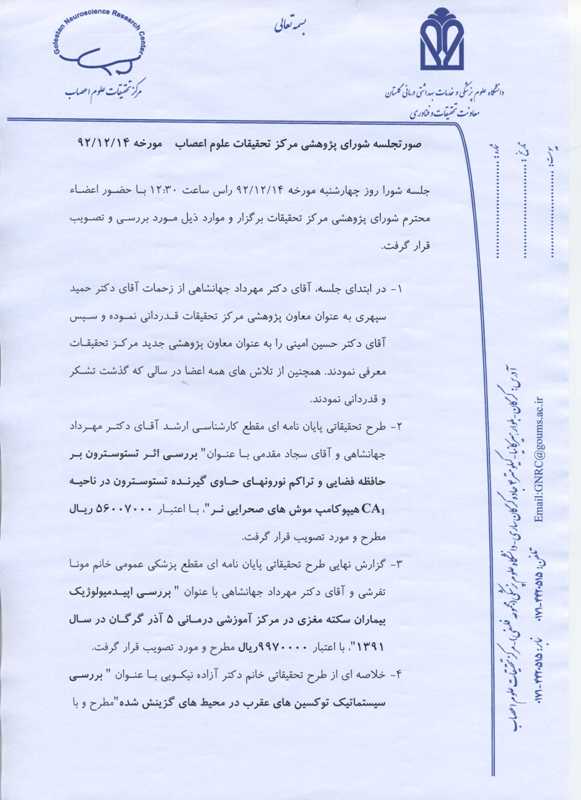 بسمه تعالی
Golestan Neuroscience Research Center
مرکز تحقیقات علوم اعصاب
دانشگاه علوم پزشکی و خدمات بهداشتی درمانی گلستان
معاونت تحقیقات و فناوری
شماره:
تاریخ:
پیوست:
صورتجلسه شورای پژوهشی مرکز تحقیقات علوم اعصاب مورخه ۹۲/۱۲/۱۴
جلسه شورا روز چهارشنبه مورخه ۹۲/۱۲/۱۴ راس ساعت ۱۲:۳۰ با حضور اعضاء
محترم شورای پژوهشی مرکز تحقیقات برگزار و موارد ذیل مورد بررسی و تصویب
قرار گرفت.
۱- در ابتدای جلسه، آقای دکتر مهرداد جهانشاهی از زحمات آقای دکتر حمید
سپهری به عنوان معاون پژوهشی مرکز تحقیقات قدردانی نموده و سپس
آقای دکتر حسین امینی را به عنوان معاون پژوهشی جدید مرکز تحقیقات
معرفی نمودند. همچنین از تلاش های همه اعضا در سالی که گذشت تشکر
و قدردانی نمودند.
۲- طرح تحقیقاتی پایان نامه ای مقطع کارشناسی ارشد آقای دکتر مهرداد
جهانشاهی و آقای سجاد مقدمی با عنوان" بررسی اثر تستوسترون بر
حافظه فضایی و تراکم نورونهای حاوی گیرنده تستوسترون در ناحیه
CA1 هیپوکامپ موش های صحرایی نر"، با اعتبار ۵۶۰۰۷۰۰۰ ریال
مطرح و مورد تصویب قرار گرفت.
۳- گزارش نهایی طرح تحقیقاتی پایان نامه ای مقطع پزشکی عمومی خانم مونا
تفرشی و آقای دکتر مهرداد جهانشاهی با عنوان " بررسی اپیدمیولوژیک
بیماران سکته مغزی در مرکز آموزشی درمانی ۵ آذر گرگان در سال
۱۳۹۱"، با اعتبار ۹۹۷۰۰۰۰ریال مطرح و مورد تصویب قرار گرفت.
۴- خلاصه ای از طرح تحقیقاتی خانم دکتر آزاده نیکویی با عنوان " بررسی
سیستماتیک توکسین های عقرب در محیط های گزینش شده"مطرح و با
تلفن: ۰۱۷۱-۴۴۲۰۵۱۵ نمابر: ۰۱۷۱-۴۴۲۰۵۱۵
Email:GNRC@goums.ac.ir